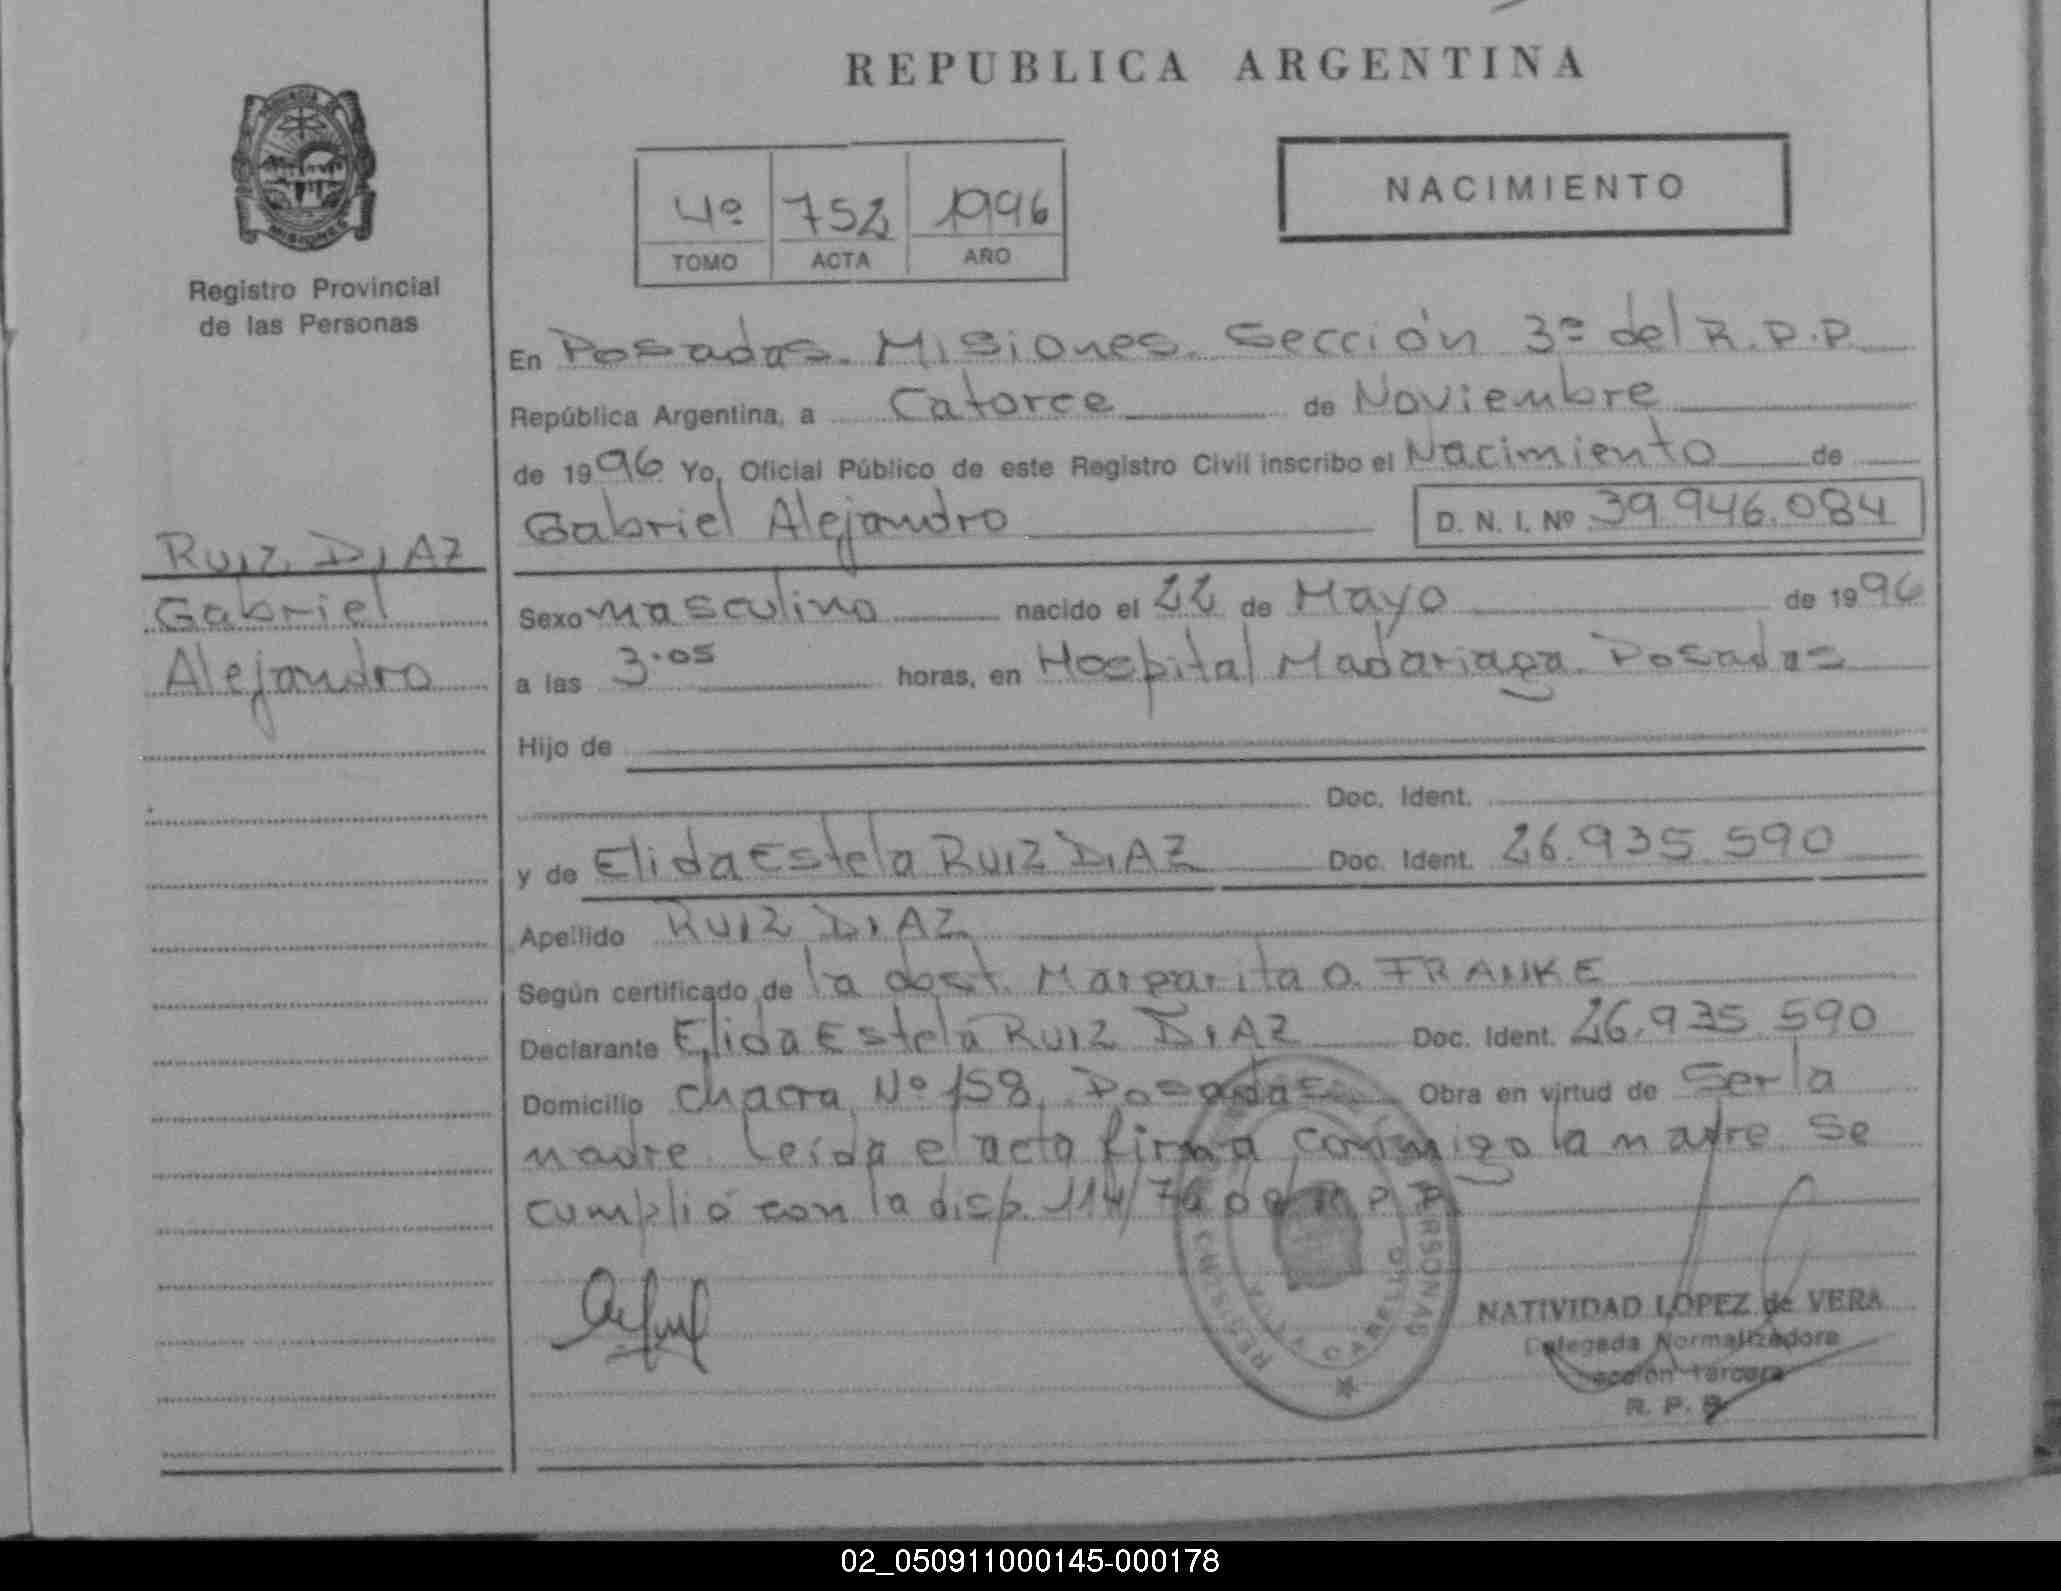 REPUBLICA ARGENTINA
NACIMIENTO
4º 752 1996
TOMO ACTA AÑO
MISIONES
Registro Provincial
de las Personas
RUIZ DIAZ
Gabriel
Alejandro
En Posadas. Misiones. Sección 3ª del R.P.P.
República Argentina, a Catorce de Noviembre
de 1996 Yo, Oficial Público de este Registro Civil inscribo el Nacimiento de
Gabriel Alejandro D. N. I. Nº 39.946.084
Sexo masculino nacido el 22 de Mayo de 1996
a las 3.05 horas, en Hospital Madariaga. Posadas
Hijo de
Doc. Ident.
y de Elida Estela RUIZ DIAZ Doc. Ident. 26.935.590
Apellido RUIZ DIAZ
Según certificado de la obst. Margarita O. FRANKE
Declarante Elida Estela RUIZ DIAZ Doc. Ident. 26.935.590
Domicilio chacra Nº 158. Posadas Obra en virtud de Ser la
madre. Leída el acta firma conmigo la madre. Se
cumplió con la disp. 114/76 del R.P.P.
NATIVIDAD LOPEZ de VERA
Delegada Normalizadora
Sección Tercera
R. P. P.
02_050911000145-000178